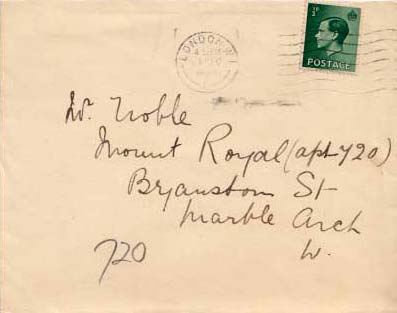 LONDON. W.1
POSTAGE
Mr. Noble
Mount Royal (apt 720)
Bryanston St
Marble Arch
W.
720